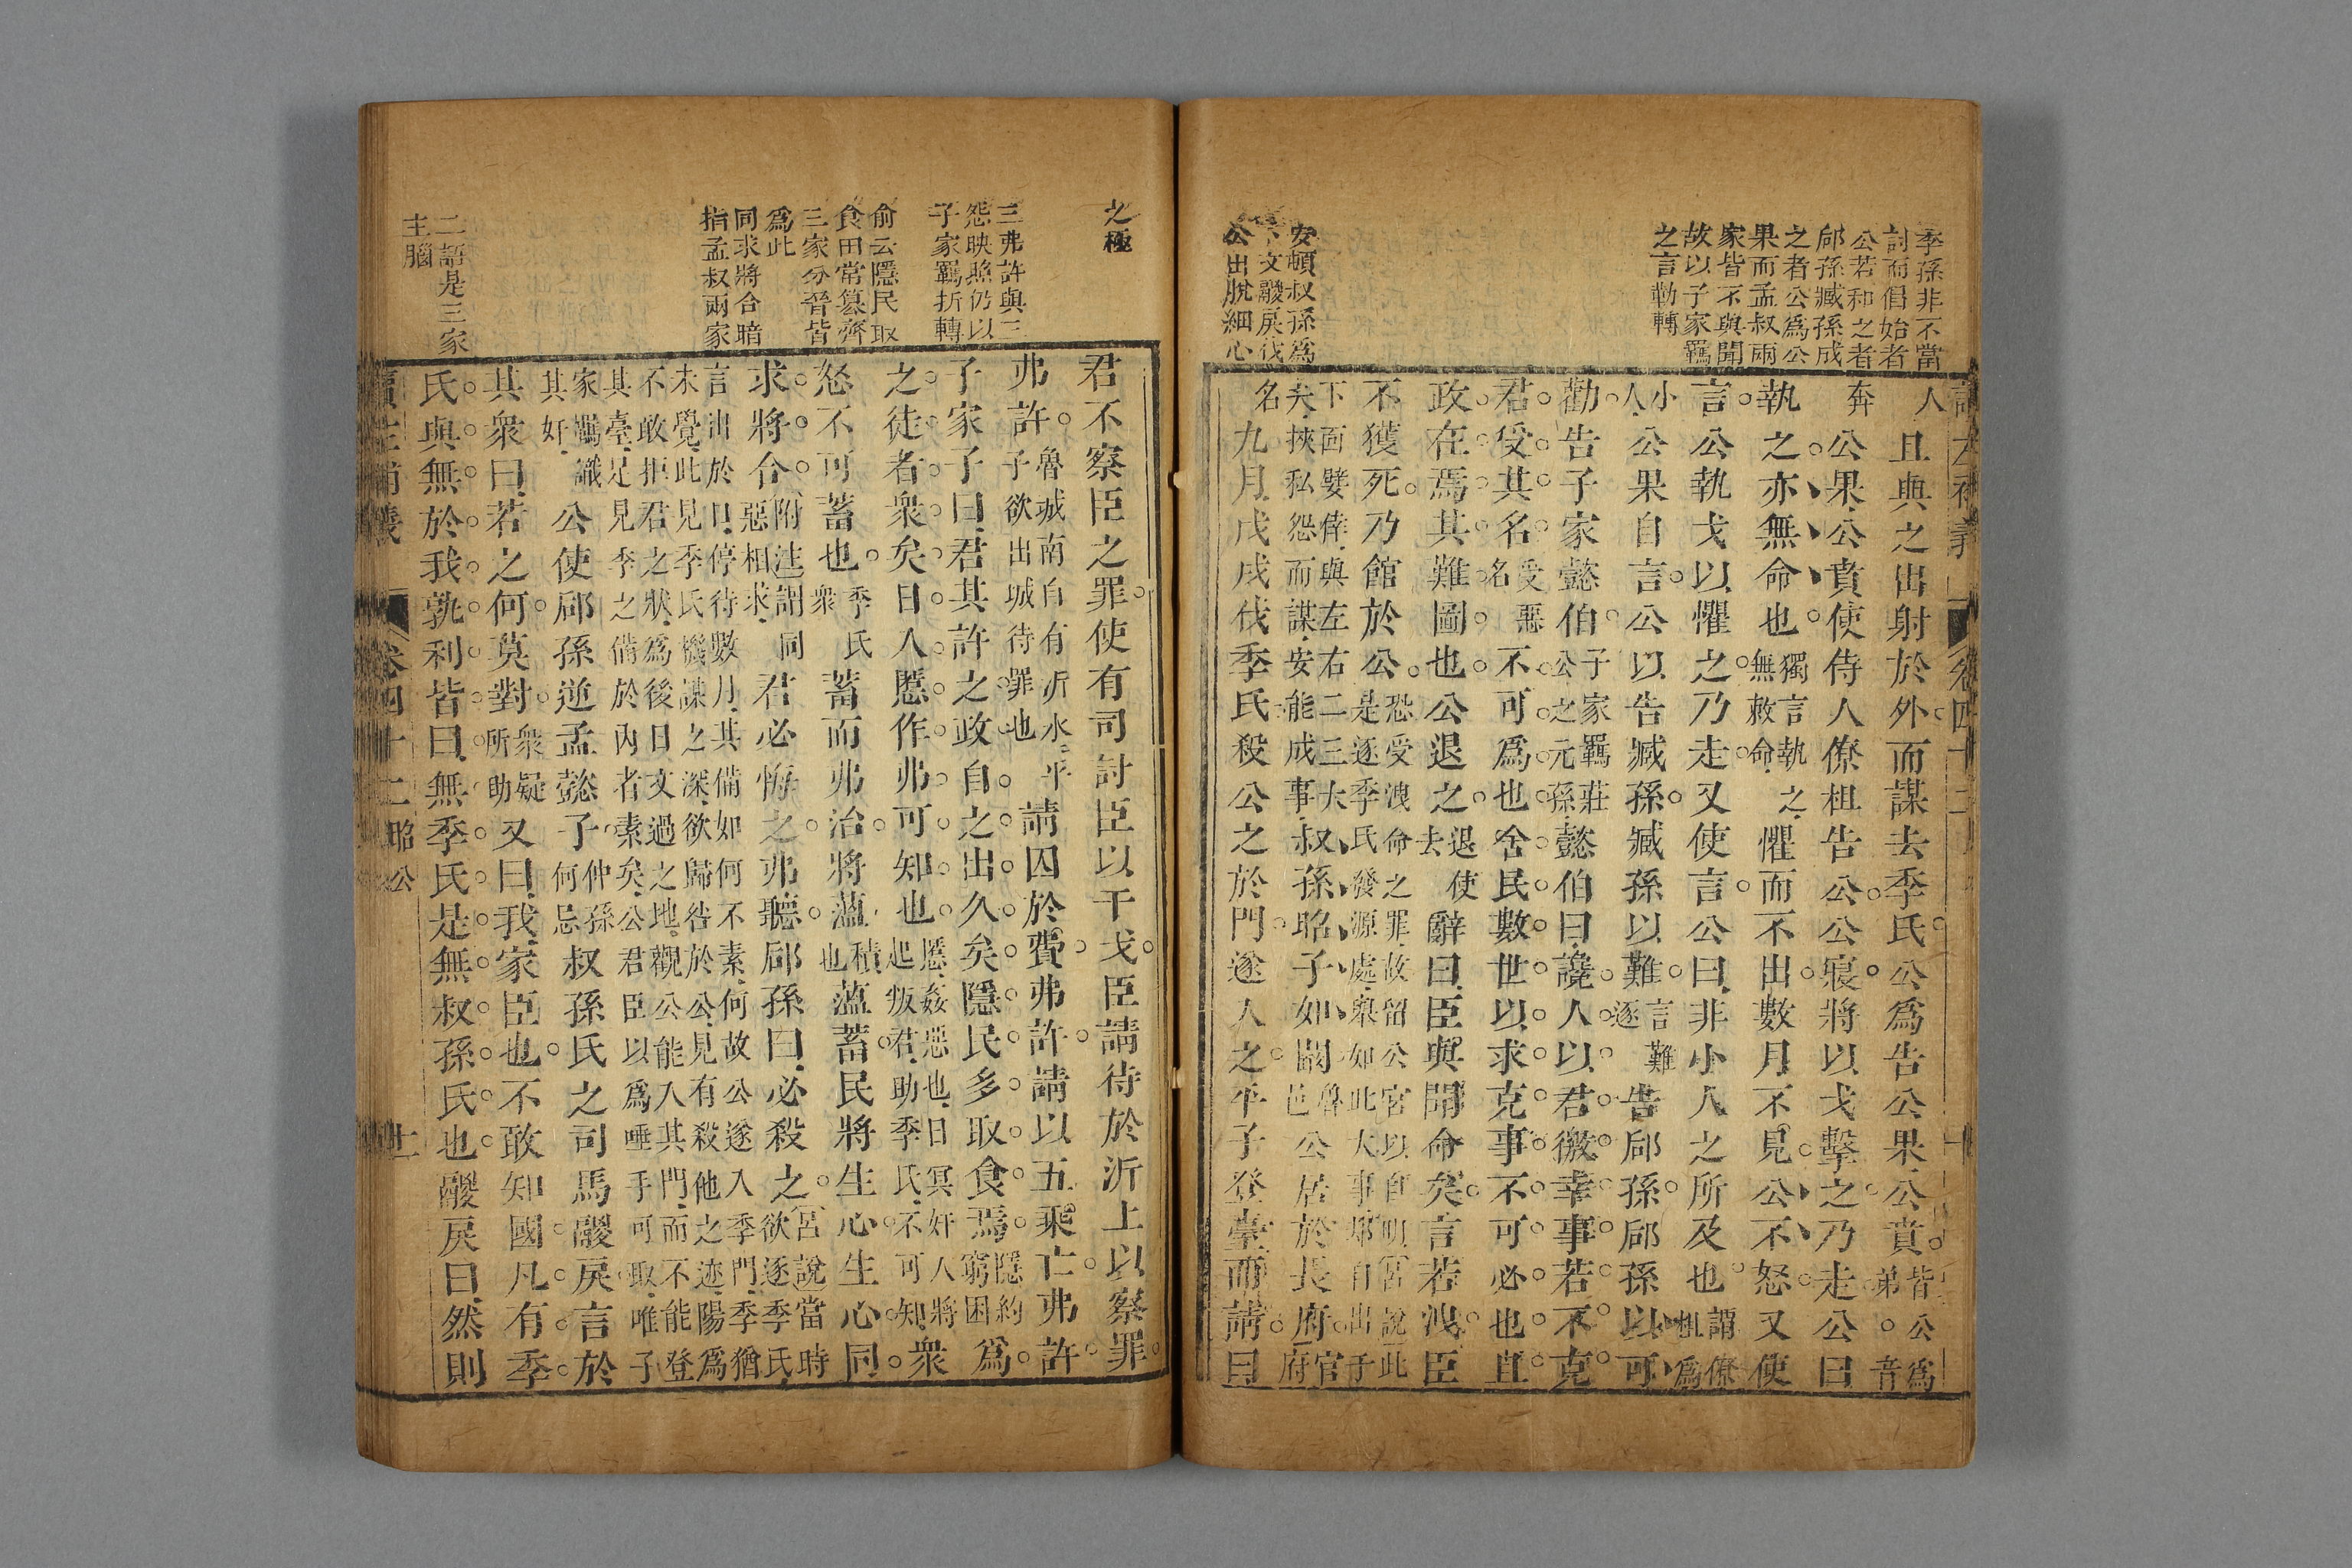 季孫非不當
討而倡始者
公若和之者
郈孫臧孫成
之者公為公
果而孟叔兩
家皆不與聞
故以子家羈
之言勒轉
安頓叔孫為
下文鬷戾伐
公出脫細心
人且與之出射於外而謀去季氏公為告公果公賁皆公為弟音
奔公果公賁使侍人僚柤告公公寢將以戈擊之乃走公曰
執之亦無命也獨言執之無敕命懼而不出數月不見公不怒又使
言公執戈以懼之乃走又使言公曰非小人之所及也謂僚柤為
小人公果自言公以告臧孫臧孫以難言難逐告郈孫郈孫以可
勸告子家懿伯子家羈莊公之元孫懿伯曰讒人以君徼幸事若不克
君受其名受惡名不可為也舍民數世以求克事不可必也且
政在焉其難圖也公退之退使去辭曰臣與聞命矣言若洩臣
不獲死乃館於公恐受洩命之罪故留公宮以自明宮說此是逐季氏發源處舉如此大事郈自出于
下面嬖倖與左右二三大夫挾私怨而謀安能成事叔孫昭子如闞魯邑公居於長府官府
名九月戊戌伐季氏殺公之於門遂入之平子登臺而請曰
卷四十二
之極
三弗許與三
怨映照仍以
子家羈折轉
俞云隱民取
食田常篡齊
三家分晉皆
為此
同求將合暗
指孟叔兩家
二語是三家
主腦
君不察臣之罪使有司討臣以干戈臣請待於沂上以察罪
弗許魯城南自有沂水平子欲出城待罪也請囚於費弗許請以五乘亡弗許
子家子曰君其許之政自之出久矣隱民多取食焉隱約窮困為
之徒者衆矣日入慝作弗可知也慝姦惡也日冥奸人將起叛君助季氏不可知衆
怒不可蓄也季氏衆蓄而弗治將薀積也薀蓄民將生心生心同
求將合附註謂同惡相求君必悔之弗聽郈孫曰必殺之宮說當時欲逐季氏
言出於口停待數月其備如何不素何故公遂入季門季猶
未覺此見季氏機謀之深欲歸咎於公見有殺他之迹陽為
不敢拒君之狀為後日文過之地觀公能入其門而不能登
其臺足見季之備於內者素矣公君臣以為唾手可取唯子
家羈識其奸公使郈孫逆孟懿子仲孫何忌叔孫氏之司馬鬷戾言於
其衆曰若之何莫對衆疑所助又曰我家臣也不敢知國凡有季
氏與無於我孰利皆曰無季氏是無叔孫氏也鬷戾曰然則
卷四十二 昭公